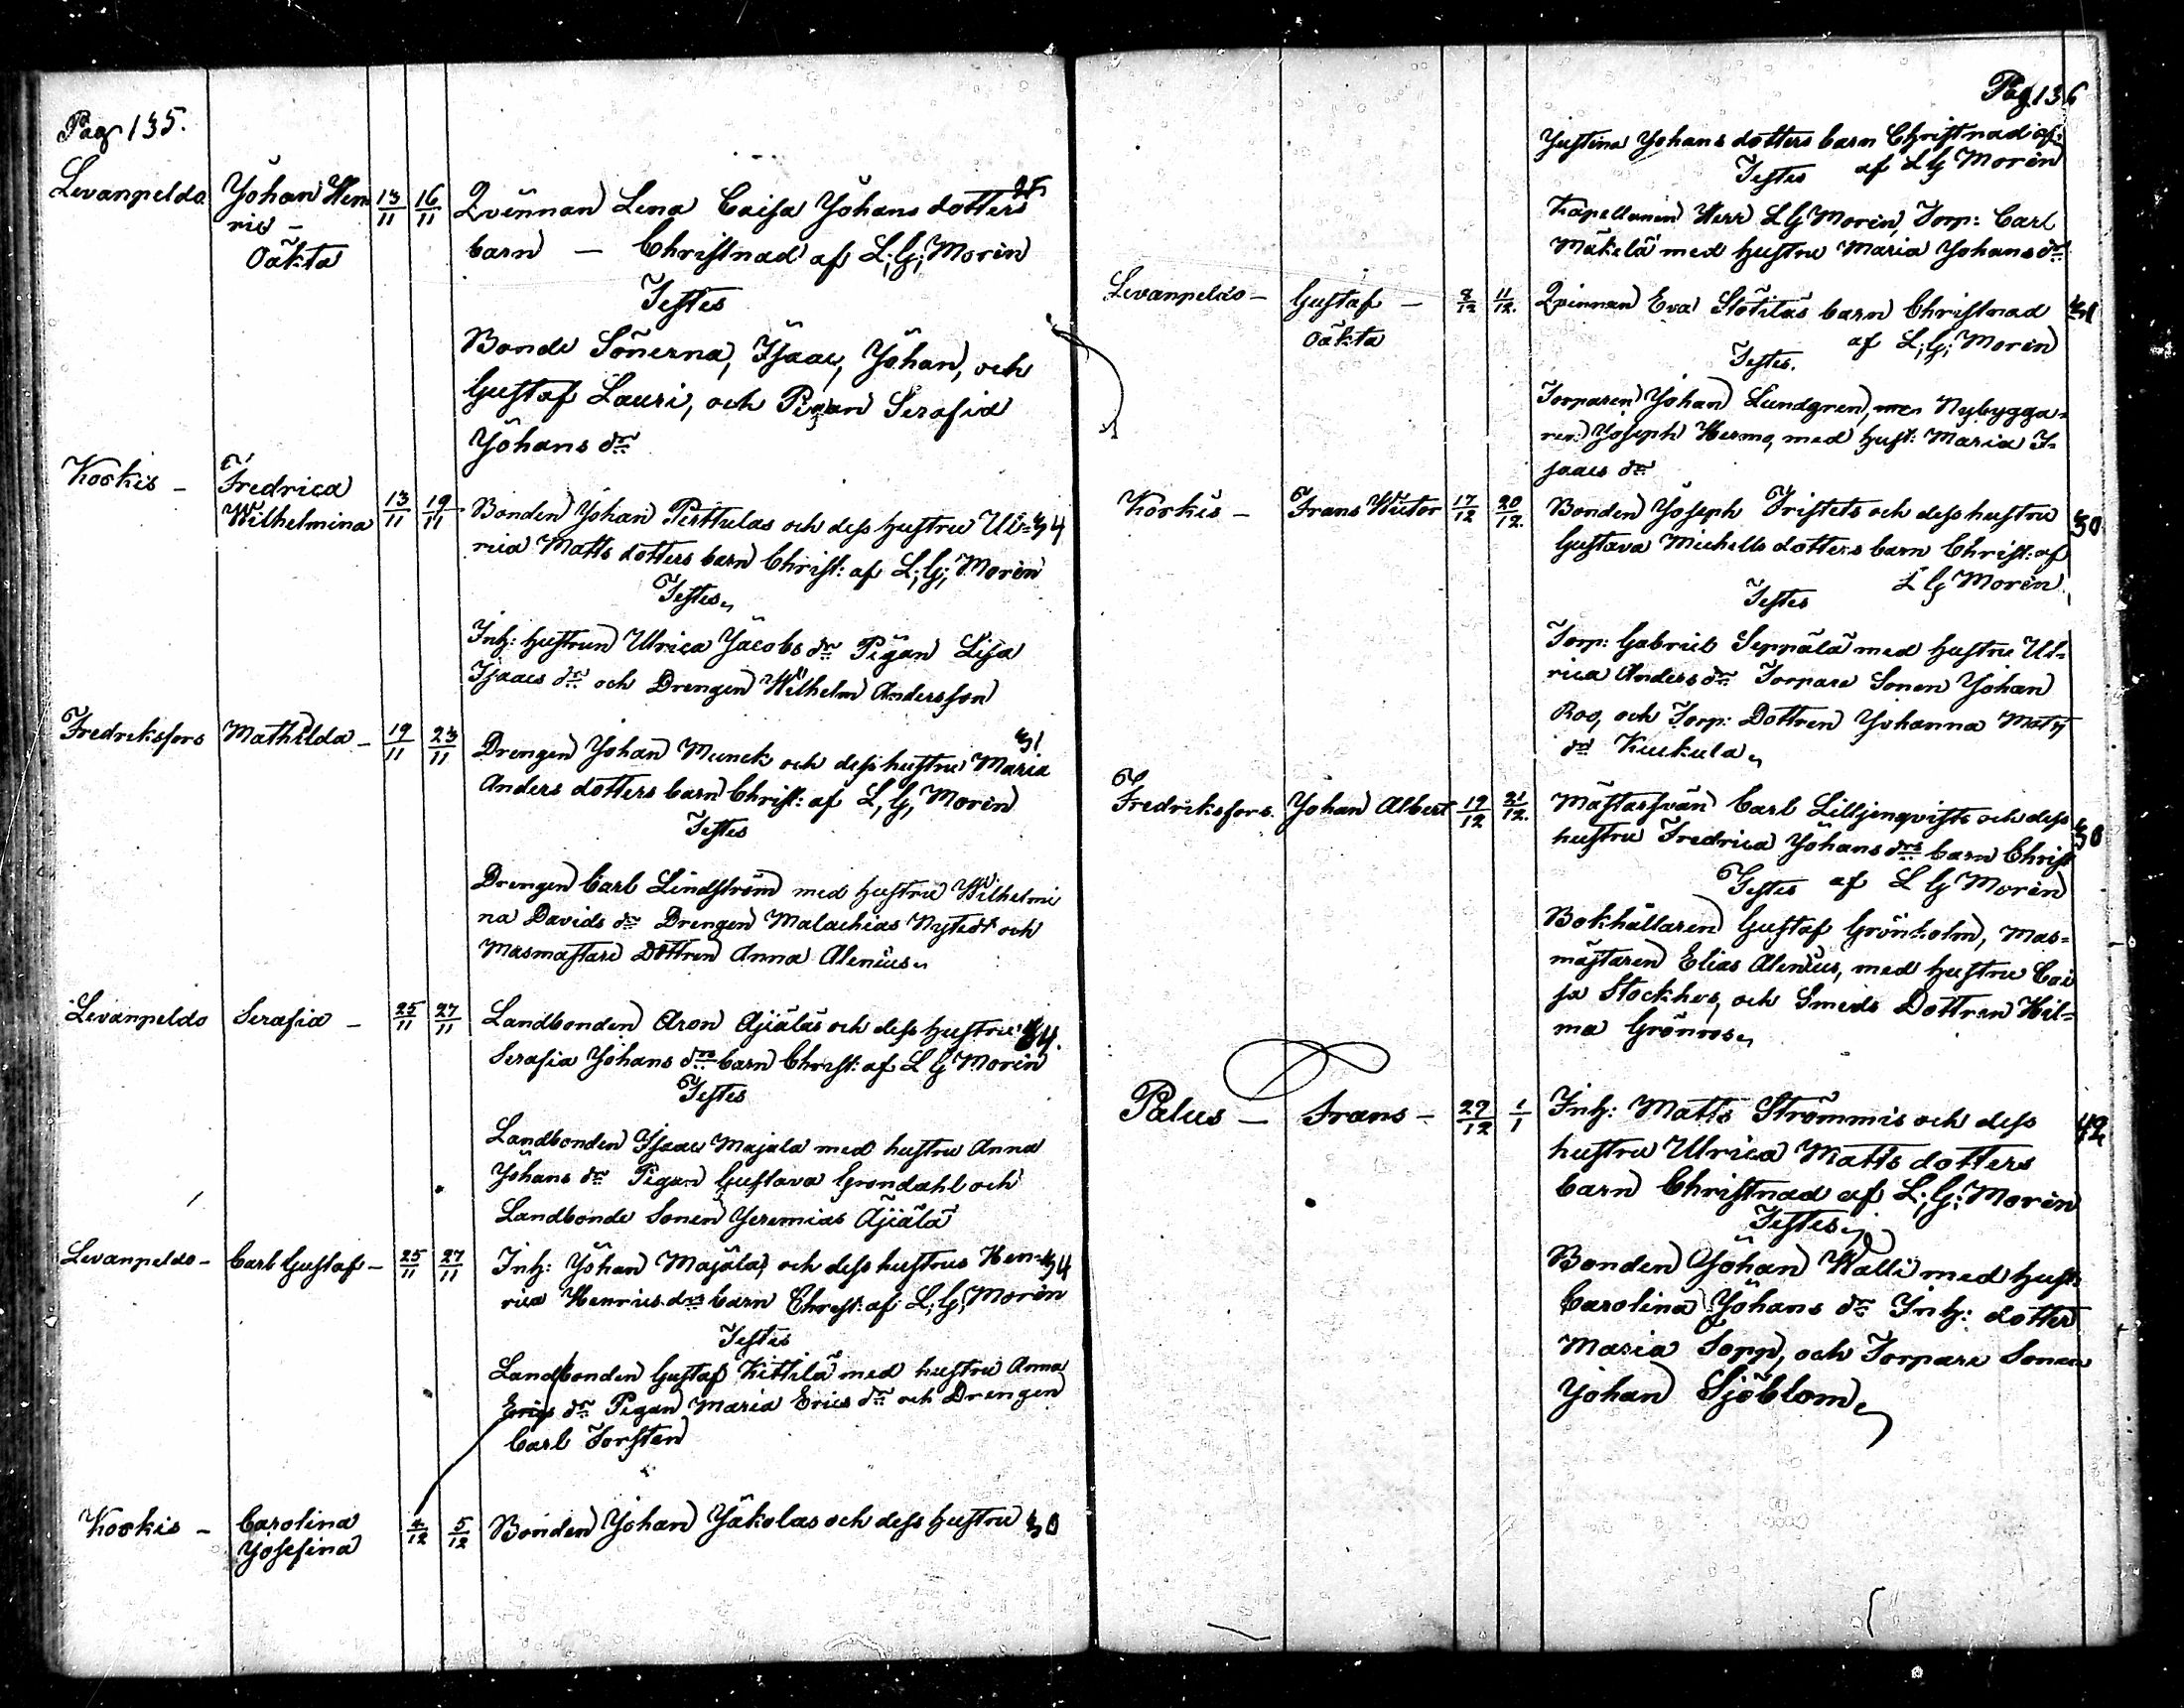 Pag 135.
Levanpeldo Johan Hen 13/11 16/11 Qvinnan Lena Caisa Johans dotters 25
ric –
barn – Christnad af L: G: Morén
Oäkta
Testes
Bonde Sönerna, Isaac, Johan, och
Gustaf Lauri, och Pigan Serafia
Johans dr
Koskis – Fredrica
Wilhelmina 13/11 19/11 Bonden Johan Perttulas och dess hustru Ul= 34
rica Matts dotters barn Christ: af L: G: Morén
Testes
Inh: hustrun Ulrica Jacobs dr Pigan Lisa
Isaacs dr och Drengen Wilhelm Andersson
Fredriksfors Mathilda – 19/11 23/11 Drengen Johan Munck och dess hustru Maria 31
Anders dotters barn Christ: af L, G, Morén
Testes
Drengen Carl Lindström med hustru Wilhelmi
na Davids dr Drengen Malachias Nytedt och
Masmästare Dottren Anna Alenius
Levanpeldo Serafia – 25/11 27/11 Landbonden Aron Äjäläs och dess hustru 34.
Serafia Johans drs barn Christ: af L G Morén
Testes
Landbonden Isaac Majala med hustru Anna
Johans dr Pigan Gustava Grondahl och
Landbonde Sonen Jeremias Äjälä
Levanpeldo – Carl Gustaf – 25/11 27/11 Inh: Johan Majalas och dess hustrus Hen= 34
rica Henrics drs barn Christ: af L: G: Morén
Testes
Landbonden Gustaf Kittilä med hustru Anna
Erics dr Pigan Maria Erics dr och Drengen
Carl Torsten
Koskis – Carolina 4/12 5/12 Bonden Johan Jakolas och dess hustru 30
Josefina
Pag 136
Justina Johans dotters barn Christnad af
Testes af L G Morén
Kapellanen Herr L G Morén, Torp: Carl
Mäkelä med hustru Maria Johans dr
Levanpeldo – Gustaf – 8/12 11/12. Qvinnan Eva Stötiläs barn Christnad 31
Oäkta
af L: G: Morén
Testes.
Torparen Johan Lundgren, Nybygga=
ren Joseph Hermo, med hust: Maria I=
saacs dr
Koskis – Frans Wictor 17/12 20/12. Bonden Joseph Fristets och dess hustru 30
Gustava Michells dotters barn Christ: af
L G Morén
Testes
Torp: Gabriel Seppälä med hustru Ul=
rica Anders dr Torpare Sonen Johan
Roo, och Torp: Dottren Johanna Matts
dr Kuckula
Fredriksfors. Johan Albert 19/12 21/12. Mästarsvän Carl Lilljenqvists och dess 30
hustru Fredrica Johans drs barn Christ
Testes af L G Morén
Bokhållaren Gustaf Grönholm, Mas=
mästaren Elias Alenius, med hustru Cai
sa Stockhus, och Smeds Dottren Hil=
ma Grönroos
Palus – Frans – 29/12 1/1 Inh: Matts Strömmis och dess 42
hustru Ulrica Matts dotters
barn Christnad af L: G: Morén
Testes
Bonden Johan Walli med hust:
Carolina Johans dr Inh: dotter
Maria Sopp, och Torpare Sonen
Johan Sjöblom